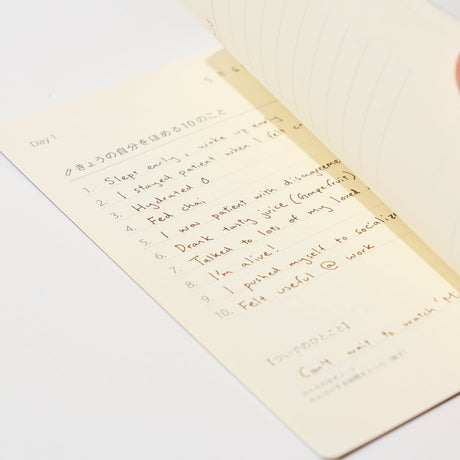 Day 1
きょうの自分をほめる10のこと
1. Slept early, woke up early
2. I stayed patient when I felt
3. Hydrated
4. Fed chai
5. I was patient with disagreeme
6. Drank tasty juice (Grapefruit)
7. Talked to lots of my loved
8. I'm alive!
9. I pushed myself to socializ
10. Felt useful @ work
【ついでのひとこと】
Can't wait to watch "M